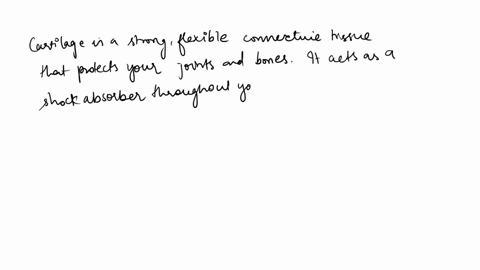 Cartilage is a strong, flexible connective tissue
that protects your joints and bones. It acts as a
shock absorber throughout yo